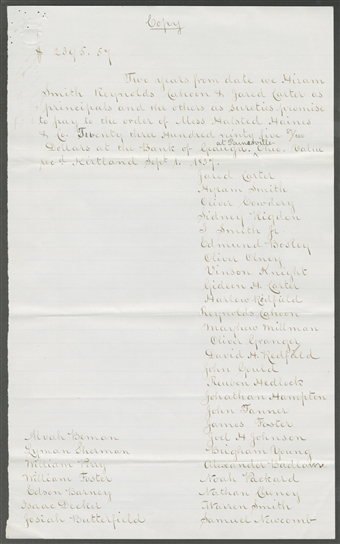 Copy
$ 2395.57
Two years from date we Hiram
Smith Reynolds Cahoon & Jared Carter as
principals and the others as sureties promise
to pay to the order of Mess Halsted Haines
& Co. Twenty three Hundred ninty five 57/100
at Painesville
Dollars at the Bank of Geauga, Ohio. Value
rec'd Kirtland Sept 1. 1837.
Jared Carter
Hyrum Smith
Oliver Cowdery
Sidney Rigdon
J Smith Jr
Edmund Bosley
Oliver Olney
Vinson Knight
Gideon H Carter
Harlow Redfield
Reynolds Cahoon
Mayhew Millman
Oliver Granger
David H. Redfield
John Gould
Reuben Hedlock
Jonathan Hampton
John Tanner
James Foster
Alvah Beman
Joel H Johnson
Lyman Sherman
Brigham Young
William Perry
Alexander Badlam
William Foster
Noah Packard
Edson Barney
Nathan
Isaac Decker
Warren Smith
Josiah Butterfield
Samuel Newcomb